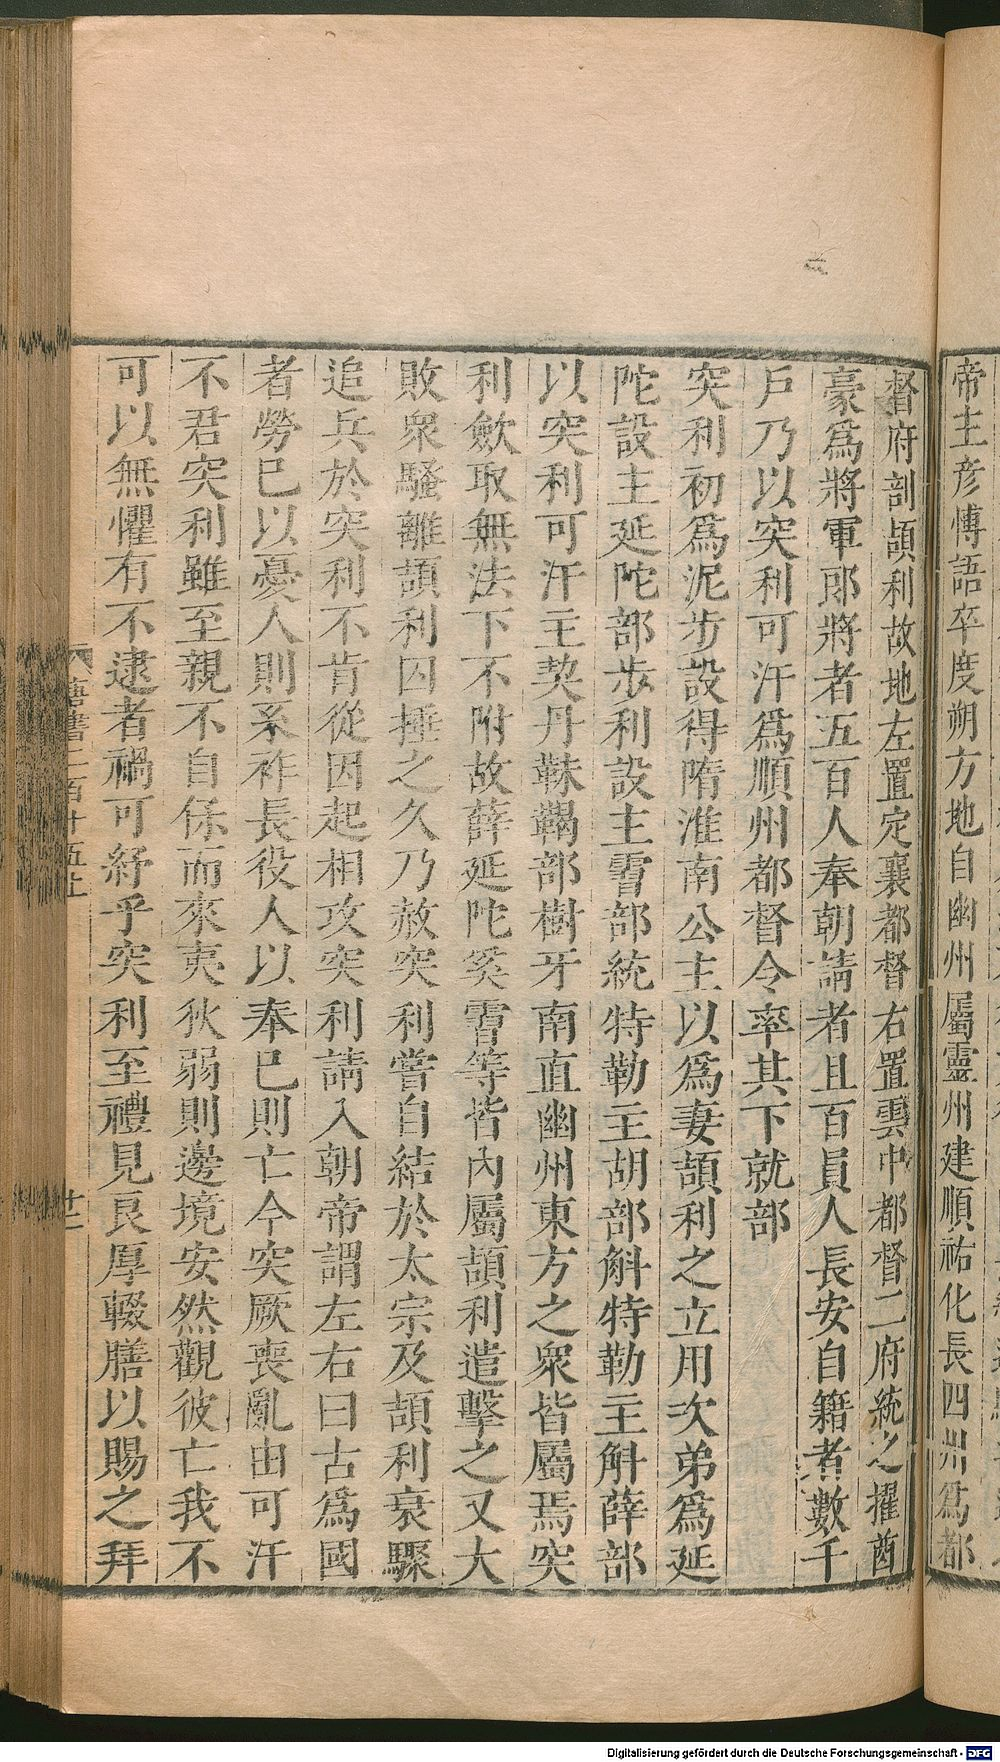 帝主彦博語卒度朔方地自幽州屬靈州建順祐化長四州爲都
督府剖頡利故地左置定襄都督右置雲中都督二府統之擢酋
豪爲將軍郎將者五百人奉朝請者且百員人長安自籍者數千
戶乃以突利可汗爲順州都督令率其下就部
突利初爲泥步設得隋淮南公主以爲妻頡利之立用次弟爲延
陀設主延陀部步利設主霫部統特勒主胡部斛特勒主斛薛部
以突利可汗主契丹靺鞨部樹牙南直幽州東方之衆皆屬焉突
利斂取無法下不附故薛延陀奚霫等皆內屬頡利遣擊之又大
敗衆騷離頡利囚捶之久乃赦突利嘗自結於太宗及頡利衰驟
追兵於突利不肯從因起相攻突利請入朝帝謂左右曰古爲國
者勞己以憂人則系祚長役人以奉己則亡今突厥喪亂由可汗
不君突利雖至親不自保而來夷狄弱則邊境安然觀彼亡我不
可以無懼有不逮者禍可紓乎突利至禮見良厚輟膳以賜之拜
唐書二百十五上
十二
Digitalisierung gefördert durch die Deutsche Forschungsgemeinschaft - DFG